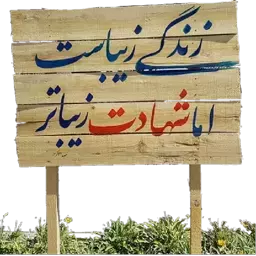 زندگی زیباست
اما شهادت زیباتر